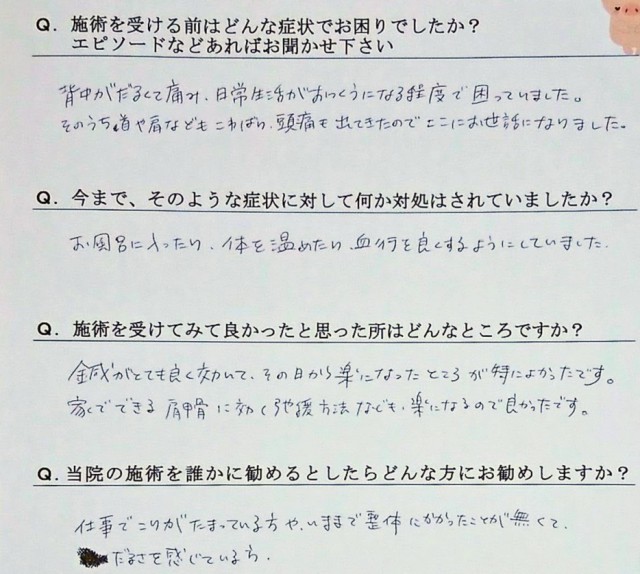 Q. 施術を受ける前はどんな症状でお困りでしたか？
エピソードなどあればお聞かせ下さい
背中がだるくて痛み、日常生活がおっくうになる程度で困っていました。
そのうち、首や肩などもこわばり、頭痛も出てきたのでここにお世話になりました。
Q. 今まで、そのような症状に対して何か対処はされていましたか？
お風呂に入ったり、体を温めたり、血行を良くするようにしていました。
Q. 施術を受けてみて良かったと思った所はどんなところですか？
鍼がとても良く効いて、その日から楽になったところが特によかったです。
家でできる肩甲骨に効く弛緩方法なども、楽になるので良かったです。
Q. 当院の施術を誰かに勧めるとしたらどんな方にお勧めしますか？
仕事でこりがたまっている方や、いままで整体にかかったことが無くて、
だるさを感じている方。